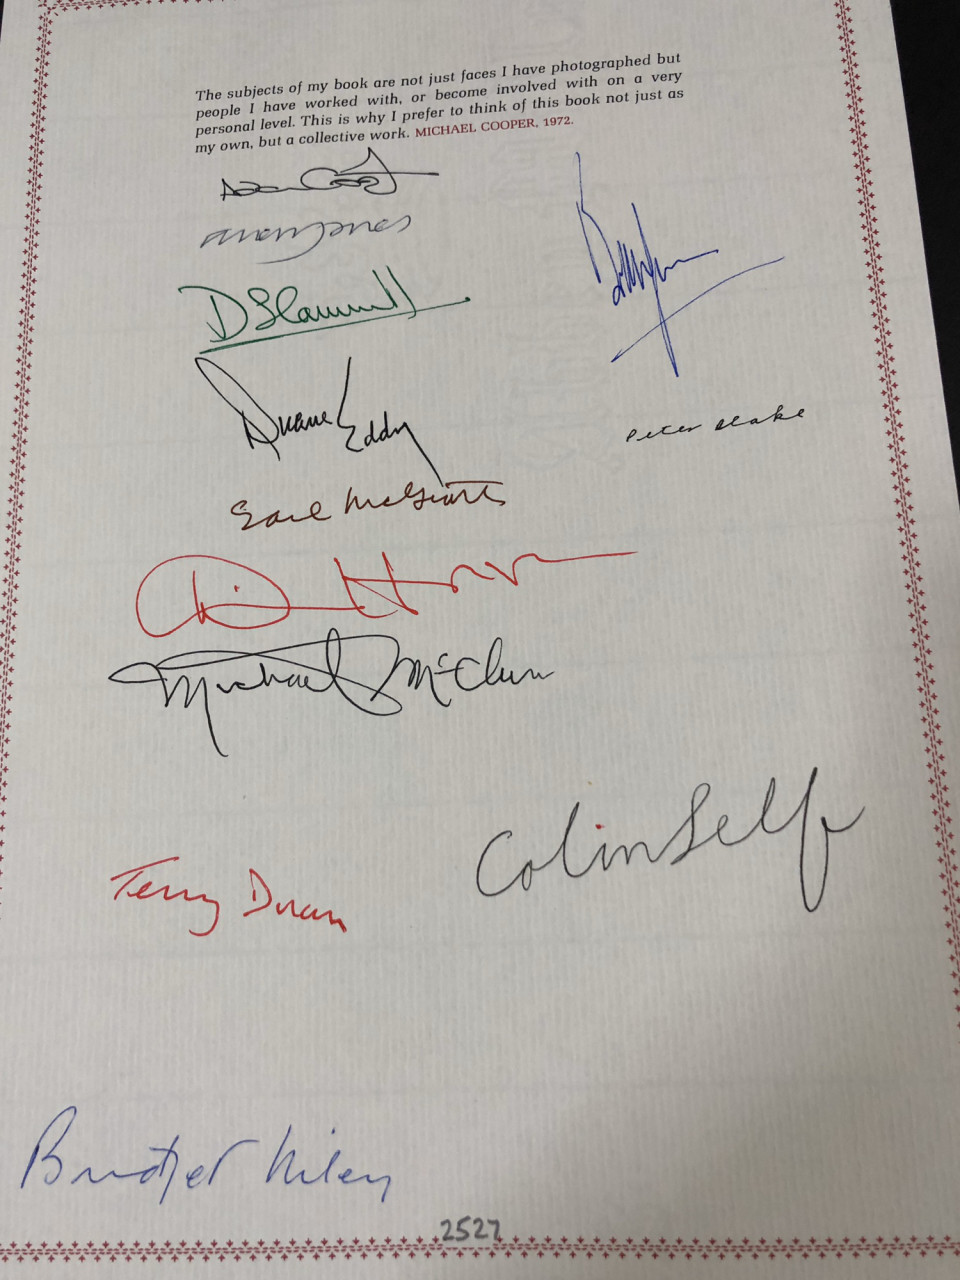 The subjects of my book are not just faces I have photographed but
people I have worked with, or become involved with on a very
personal level. This is why I prefer to think of this book not just as
my own, but a collective work. MICHAEL COOPER, 1972.
Adam Cooper
Duane Eddy
Peter Blake
Earl McGrath
Michael McClure
Colin Self
Terry Doran
Bridget Riley
2527